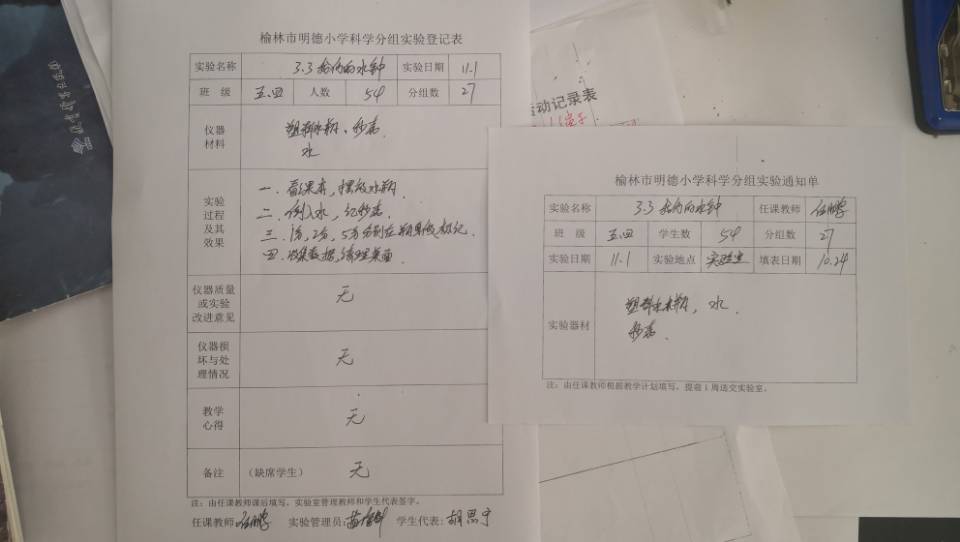 榆林市明德小学科学分组实验登记表
实验名称 3.3 我们的水钟 实验日期 11.1
班 级 五.四 人数 54 分组数 27
仪器材料 塑料水瓶、秒表
水
实验过程及其效果 一. 看课本,摆放水瓶
二. 倒入水,记秒表.
三. 1分,2分,5分分别在瓶身做标记.
四. 收集数据,清理桌面.
仪器质量或实验改进意见 无
仪器损坏与处理情况 无
教学心得 无
备注 (缺席学生) 无
注:由任课教师课后填写,实验室管理教师和学生代表签字。
任课教师: 实验管理员: 学生代表: 胡思宁
动记录表
榆林市明德小学科学分组实验通知单
实验名称 3.3 我们的水钟 任课教师
班 级 五.四 学生数 54 分组数 27
实验日期 11.1 实验地点 实验室 填表日期 10.24
实验器材 塑料水瓶, 水.
秒表.
注:由任课教师根据教学计划填写,提前1周送交实验室。